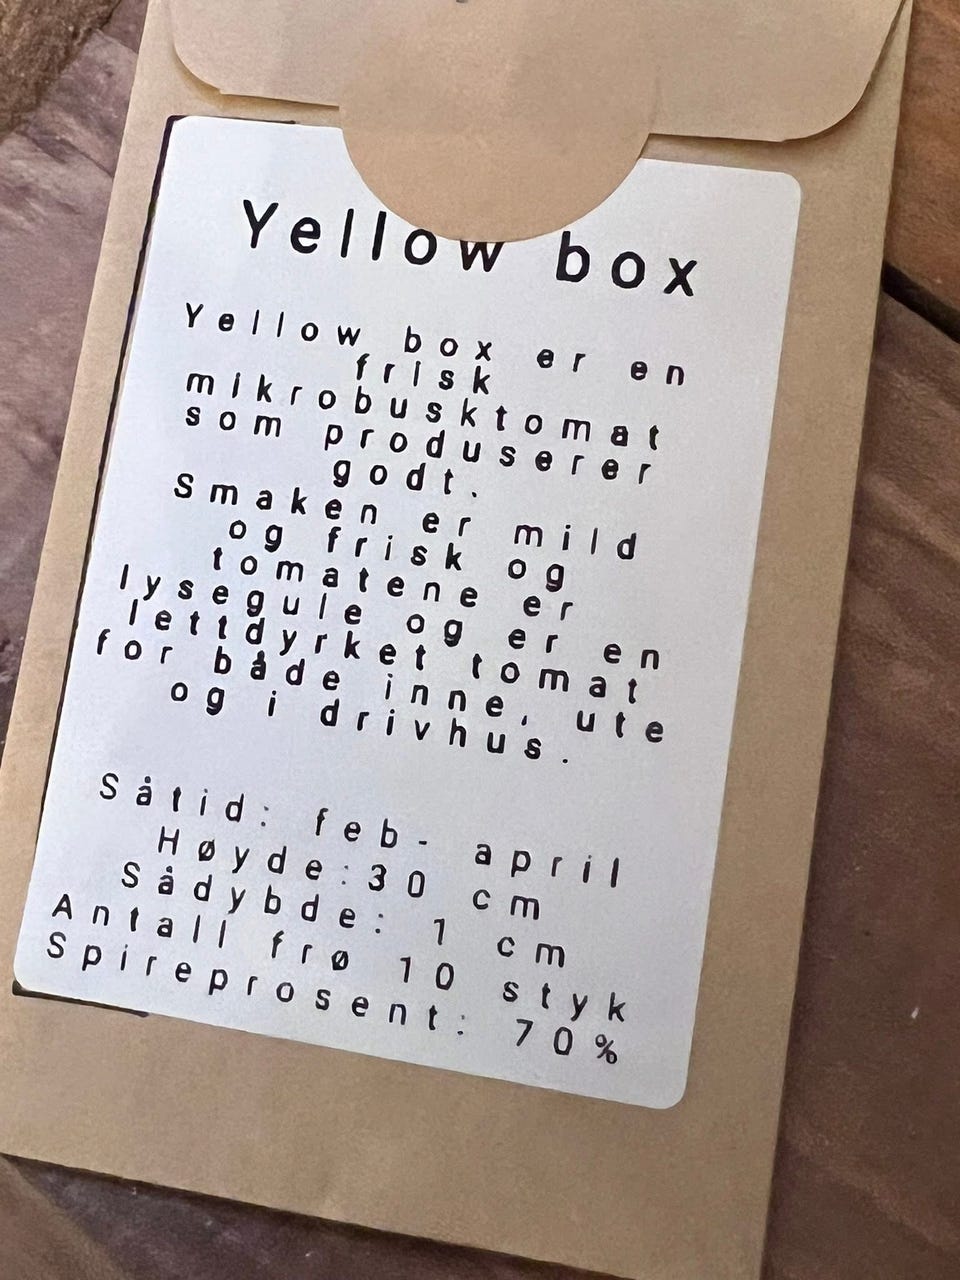 Yellow box
Yellow box er en
frisk
mikrobusktomat
som produserer
godt.
Smaken er mild
og frisk og
tomatene er
lysegule og er en
lettdyrket tomat
for både inne, ute
og i drivhus.
Såtid: feb- april
Høyde:30 cm
Sådybde: 1 cm
Antall frø 10 styk
Spireprosent: 70%